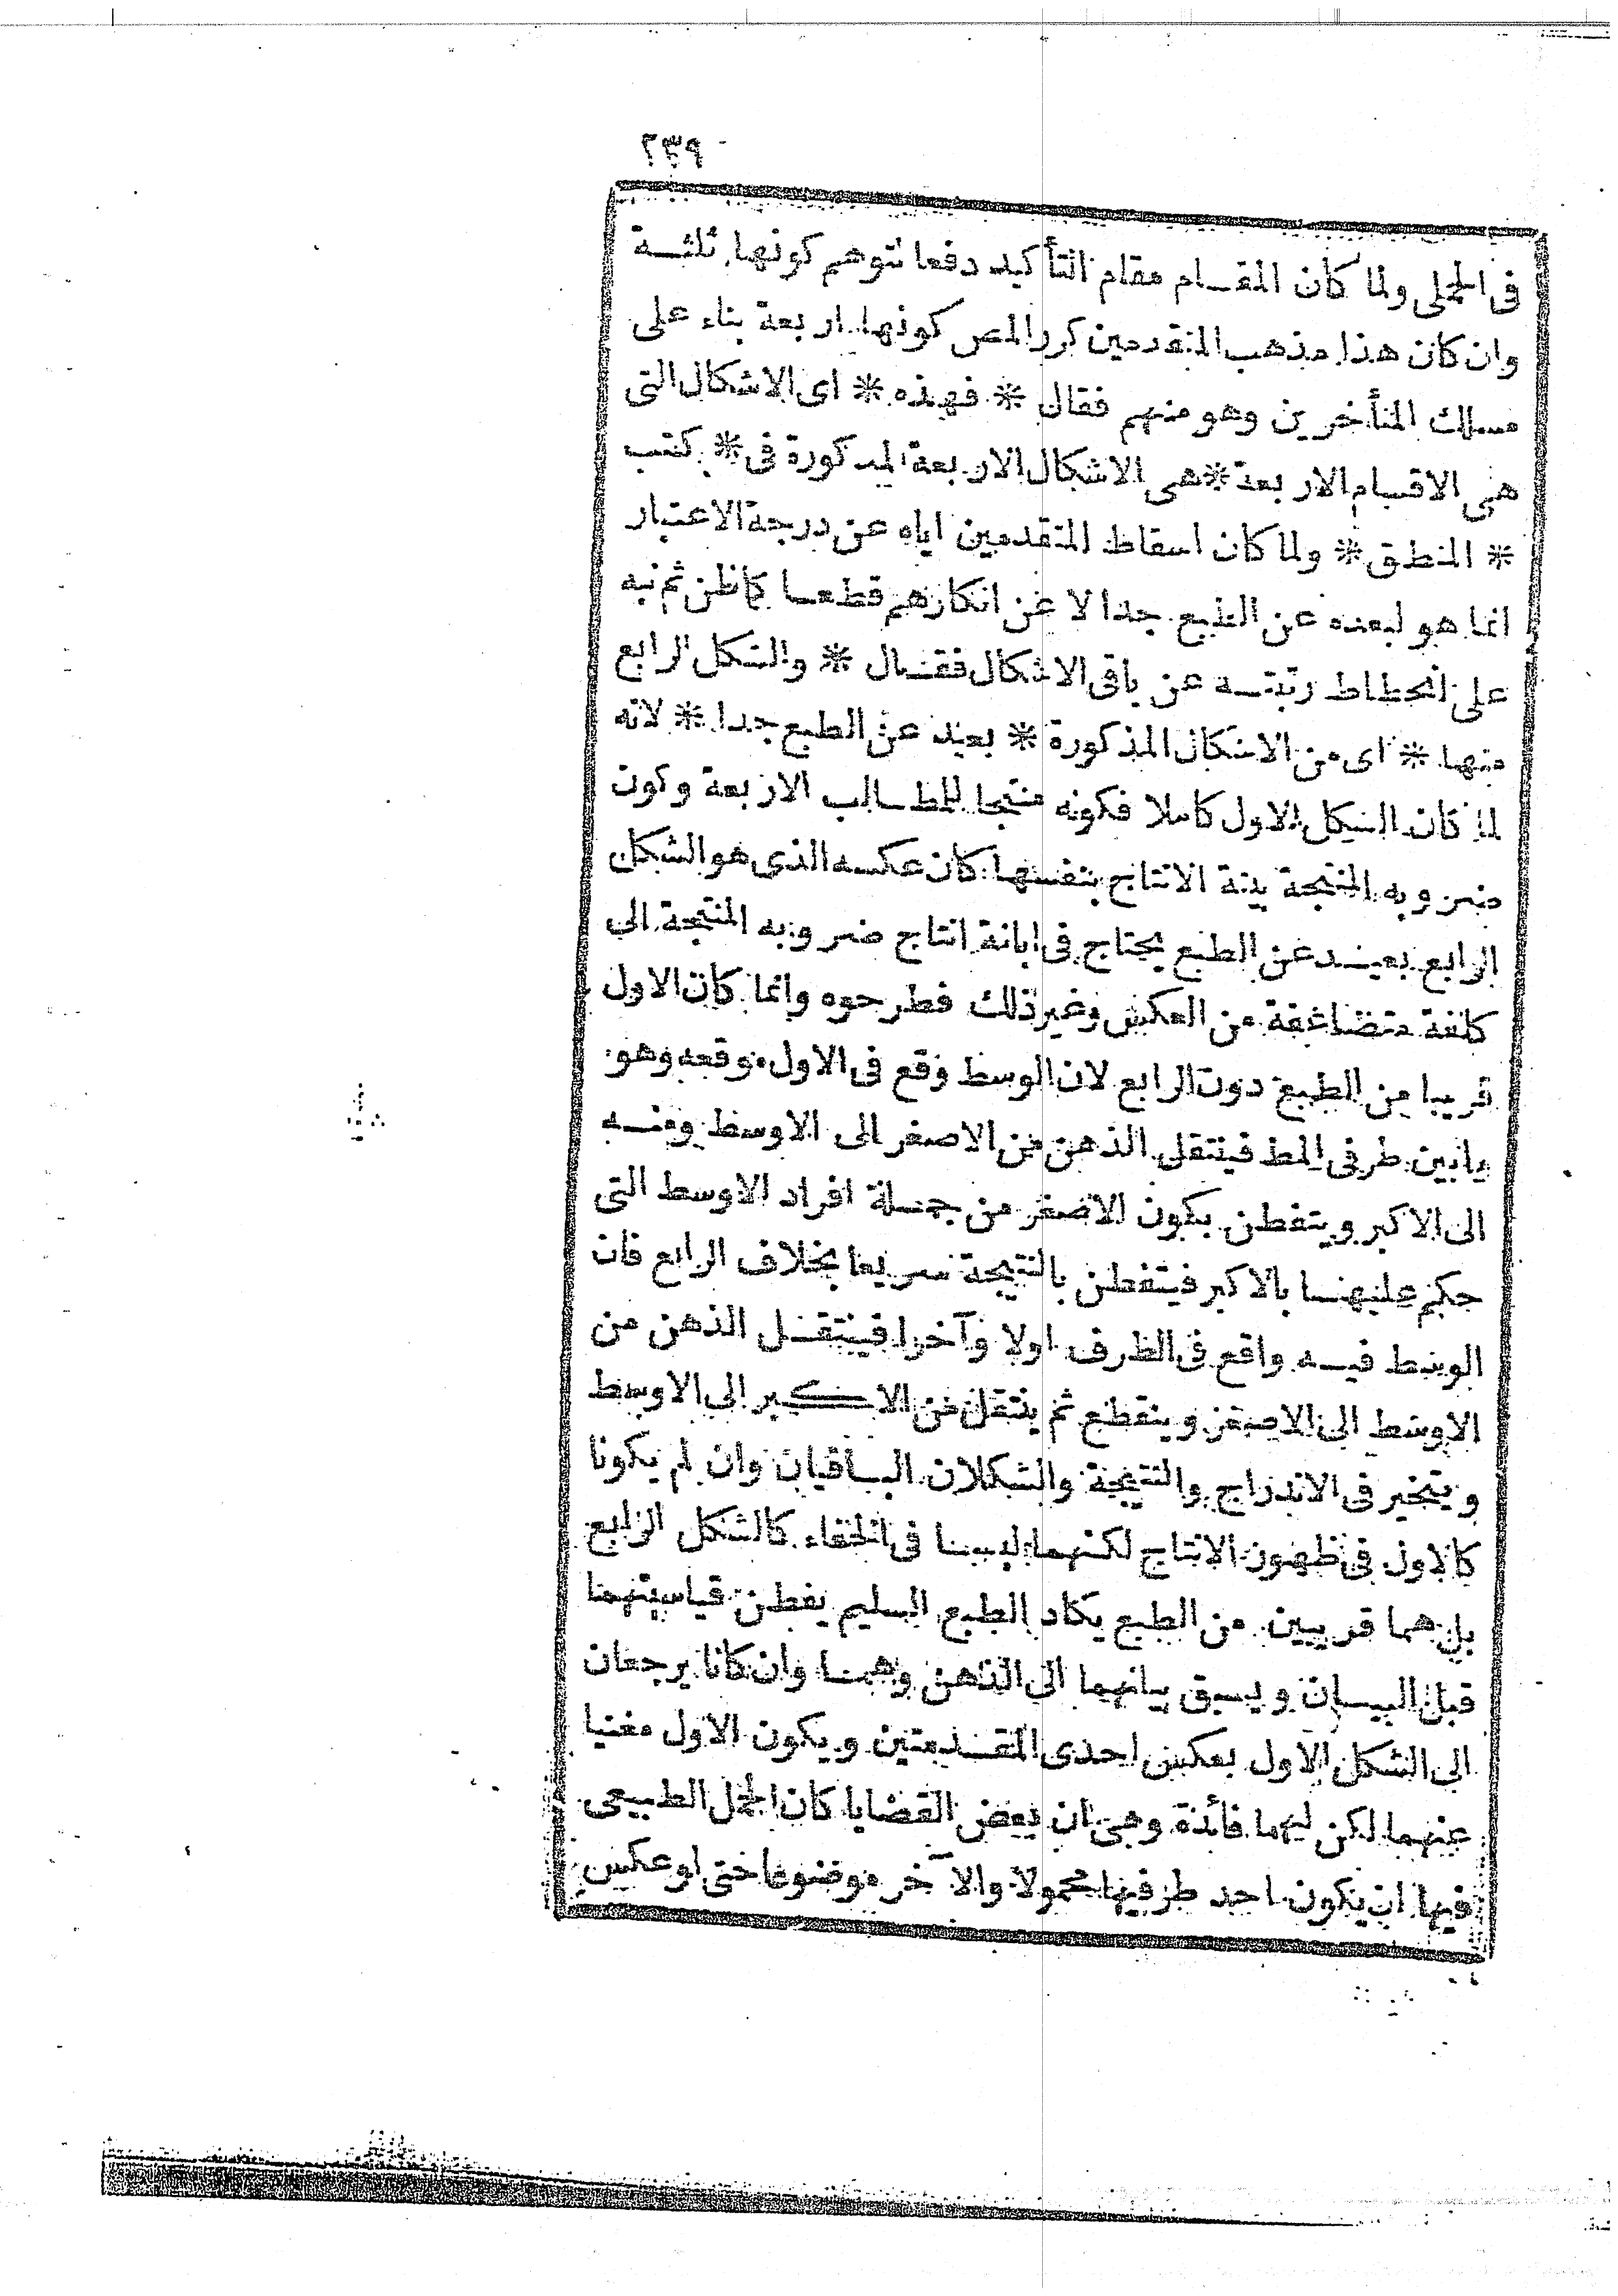 ٢٣٩
فى الحملى ولما كان المقام مقام التأكيد دفعا لتوهم كونها ثلثة
وان كان هذا مذهب المتقدمين كرر المص كونها اربعة بناء على
مسلك المتأخرين وهو منهم فقال * فهذه * اى الاشكال التى
هى الاقسام الاربعة * هى الاشكال الاربعة المذكورة فى * كتب
* المنطق * ولما كان اسقاط المتقدمين اياه عن درجة الاعتبار
انما هو لبعده عن الطبع جدا لا عن انكارهم قطعا كما ظن ثم نبه
على انحطاط رتبته عن باقى الاشكال فقال * والشكل الرابع
منها * اى من الاشكال المذكورة * بعيد عن الطبع جدا * لانه
لما كان الشكل الاول كاملا فكونه منتجا للمطالب الاربعة وكون
ضروبه المنتجة بينة الانتاج بنفسها كان عكسه الذى هو الشكل
الرابع بعيد عن الطبع يحتاج فى ابانة انتاج ضروبه المنتجة الى
كلفة متضاعفة من العكس وغير ذلك فطرحوه وانما كان الاول
قريبا من الطبع دون الرابع لان الوسط وقع فى الاول موقعه وهو
مابين طرفى المط فينتقل الذهن من الاصغر الى الاوسط ومنه
الى الاكبر ويتفطن بكون الاصغر من جملة افراد الاوسط التى
حكم عليها بالاكبر فيتفطن بالنتيجة سريعا بخلاف الرابع فان
الوسط فيه واقع فى الظرف اولا وآخرا فينتقل الذهن من
الاوسط الى الاصغر وينقطع ثم ينتقل من الاكبر الى الاوسط
ويتحير فى الاندراج والنتيجة والشكلان الباقيان وان لم يكونا
كالاول فى ظهور الانتاج لكنهما ليسا فى الخفاء كالشكل الرابع
بل هما قريبين من الطبع يكاد الطبع السليم يفطن قياسيتهما
قبل البيان ويسبق بيانهما الى الذهن وهما وان كانا يرجعان
الى الشكل الاول بعكس احدى المقدمتين ويكون الاول مغنيا
عنهما لكن لهما فائدة وهى ان بعض القضايا كان الحمل الطبيعى
فيها ان يكون احد طرفيها محمولا والآخر موضوعا حتى لو عكس